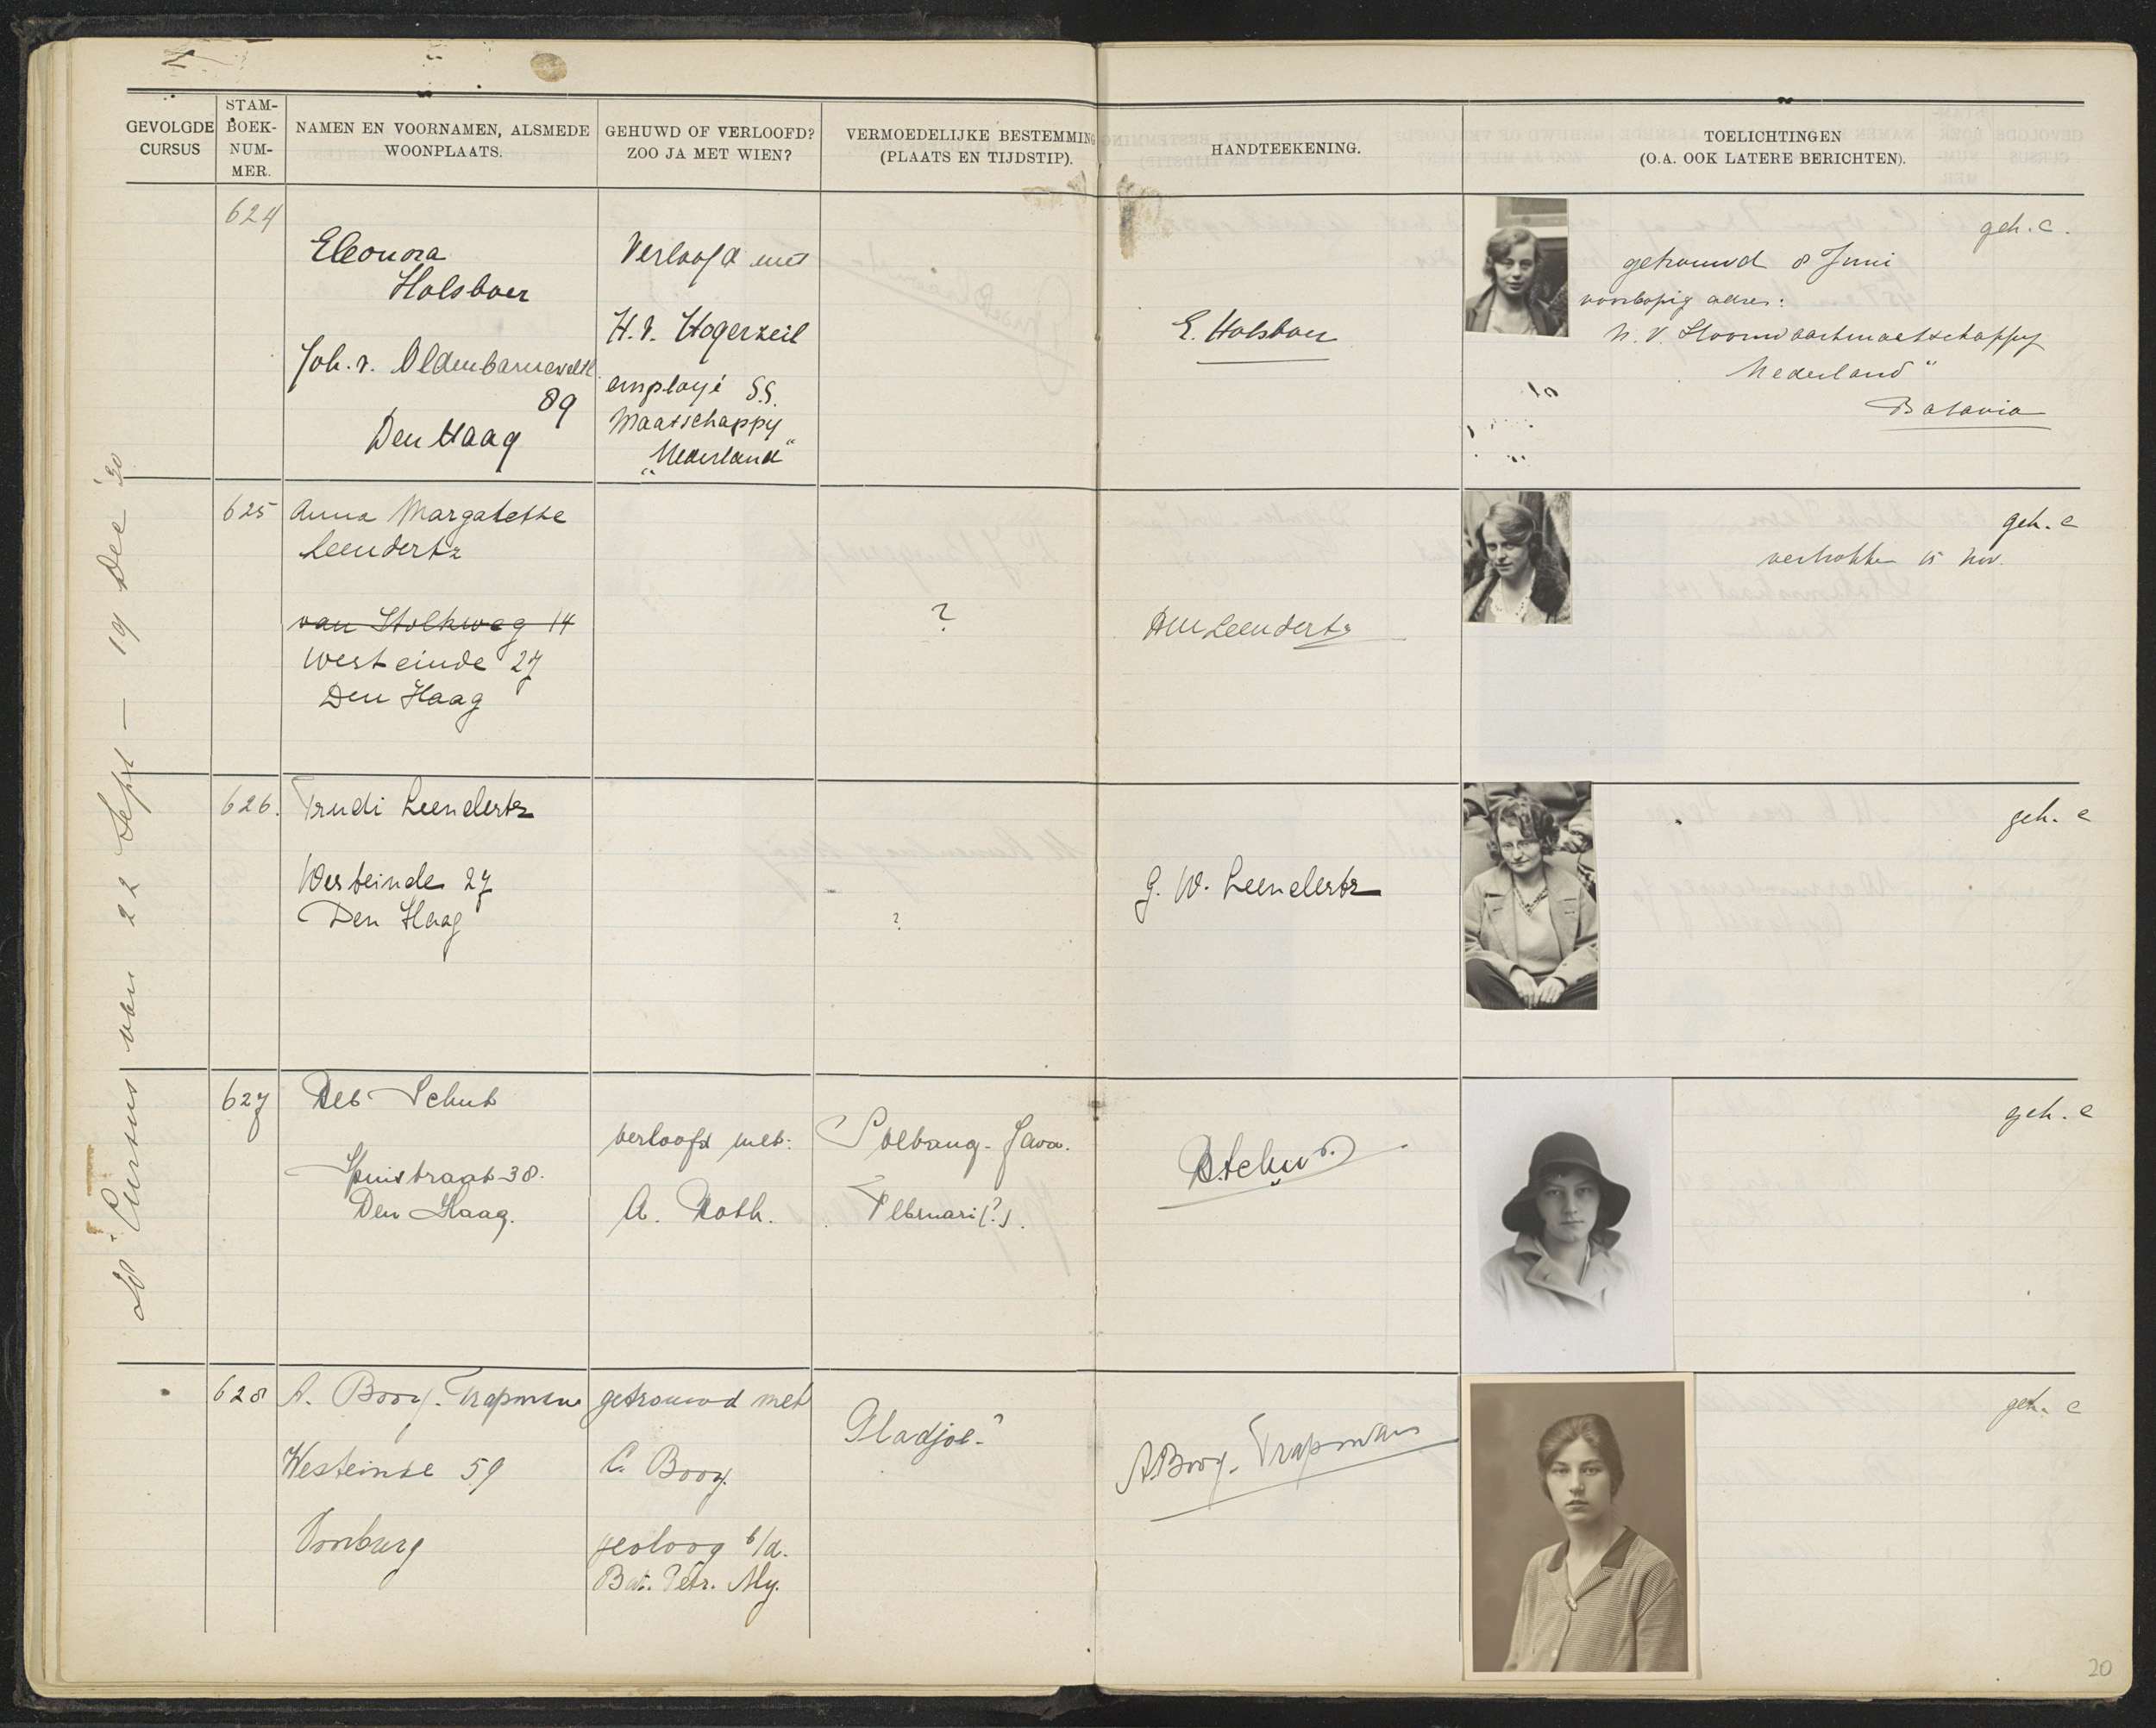 GEVOLGDE CURSUS
STAM-BOEK-NUM-MER.
NAMEN EN VOORNAMEN, ALSMEDE WOONPLAATS.
GEHUWD OF VERLOOFD? ZOO JA MET WIEN?
VERMOEDELIJKE BESTEMMING (PLAATS EN TIJDSTIP).
HANDTEEKENING.
TOELICHTINGEN
(O.A. OOK LATERE BERICHTEN).
Cursus van 22 Sept — 19 Dec '30
624
Eleonora
Holsboer
Joh. v. Oldenbarneveltl.
89
Den Haag
Verloofd met
H.V. Hogerzeil
employé S.S.
Maatschappy
„Nederland"
E. Holsboer
geh. c.
getrouwd 8 Juni
voorlopig adres:
N.V. Stoomvaartmaatschappy
Nederland"
Batavia
625
Anna Margarethe
Leendertz
van Stolkweg 14
Westeinde 27
Den Haag
?
AMLeendertz
geh. c
vertrokken 15 Nov.
626.
Trudi Leendertz
Westeinde 27
Den Haag
?
G. W. Leendertz
geh. c
627
Deb Schut
Spuistraat 38.
Den Haag.
verloofd met:
A. Roth.
Soebang - Java.
Februari (?).
D. Schut
geh. c
628
A. Booy-Trapman
Westeinde 59
Voorburg
getrouwd met
C. Booy.
geoloog b/d.
Bat. Petr. My.
Pladjoe?
ABooy-Trapman
geh. c
20